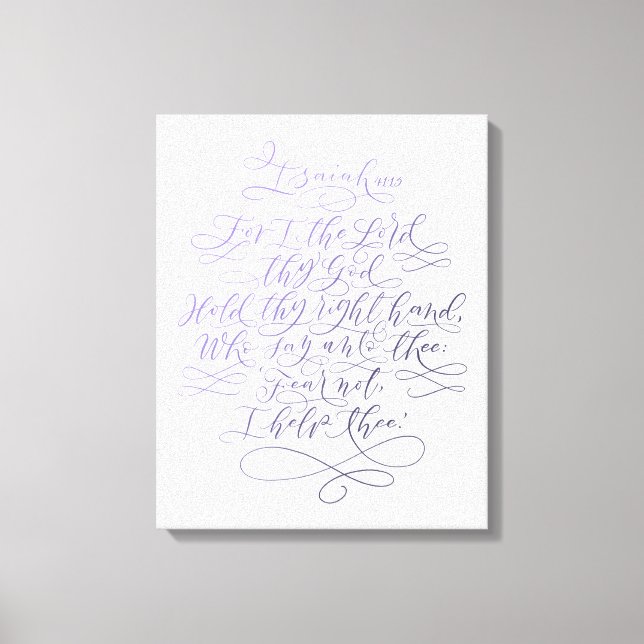 Isaiah 41:13
For I, the Lord
thy God
Hold thy right hand,
Who say unto thee:
'Fear not,
I help thee.'